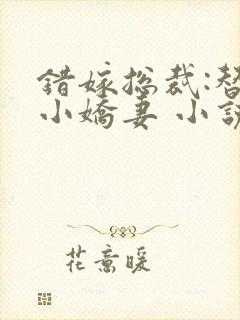 錯嫁总裁:替
小嬌妻 小說
花意暖